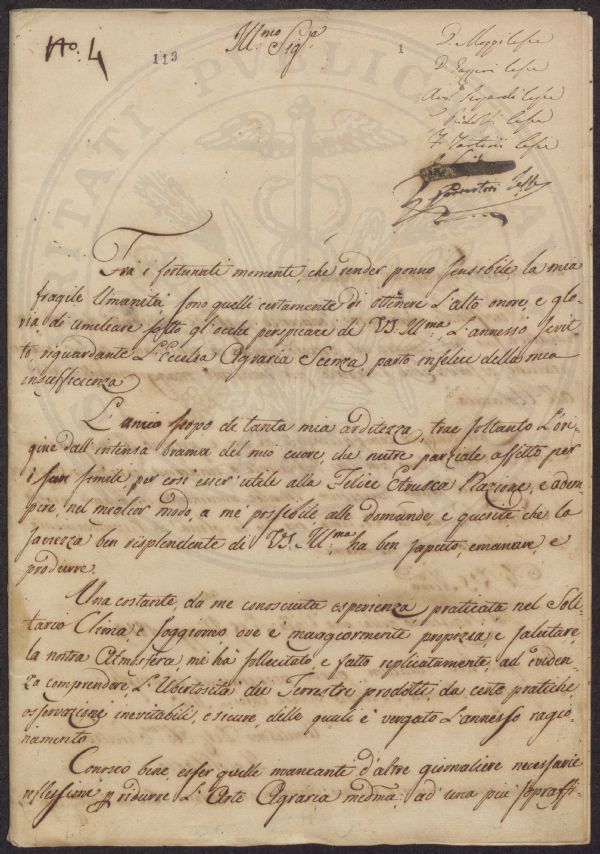 No. 4
113
Ill:mo Sig:ra
1
Tra i fortunati momenti, che render ponno sensibile, la mia
fragile Umanità sono quelle certamente di ottenere L'alto onore, e glo-
ria di umiliare sotto gl'occhi perspicaci di VS. Ill:ma, L'annesso scrit
to, riguardante L'Eccelsa Agraria Scenza, parto infelice della mia
insufficienza
L'unico scopo di tanta mia arditezza, trae soltanto L'ori-
gine dall'intensa brama del mio cuore, che nutre parziale affetto per
i suoi simili, per così esser'utile alla Felice Etrusca Nazione, e adem-
pire, nel meglior modo, a me possibile alle domande, e quesiti che la
saviezza ben risplendente di VS. Ill:ma ha ben saputo, emanare, e
produrre.
Una costante, da me conosciuta esperienza, praticata nel Soli-
tario Clima e soggiorno ove è maggiormente propizia, e salutare,
la nostra Atmosfera, mi ha sollecitato, e fatto replicatamente, ad'eviden-
za comprendere, L'Ubertosità dei Terrestri prodotti, da certe pratiche,
osservazione inevitabili, e sicure, delle quali è vergato L'annesso ragio-
namento.
Conosco bene, esser quelle mancante d'altre giornaliere necessarie
reflessione p ridurre L'Arte Agraria medma: ad'una più sopraffi-